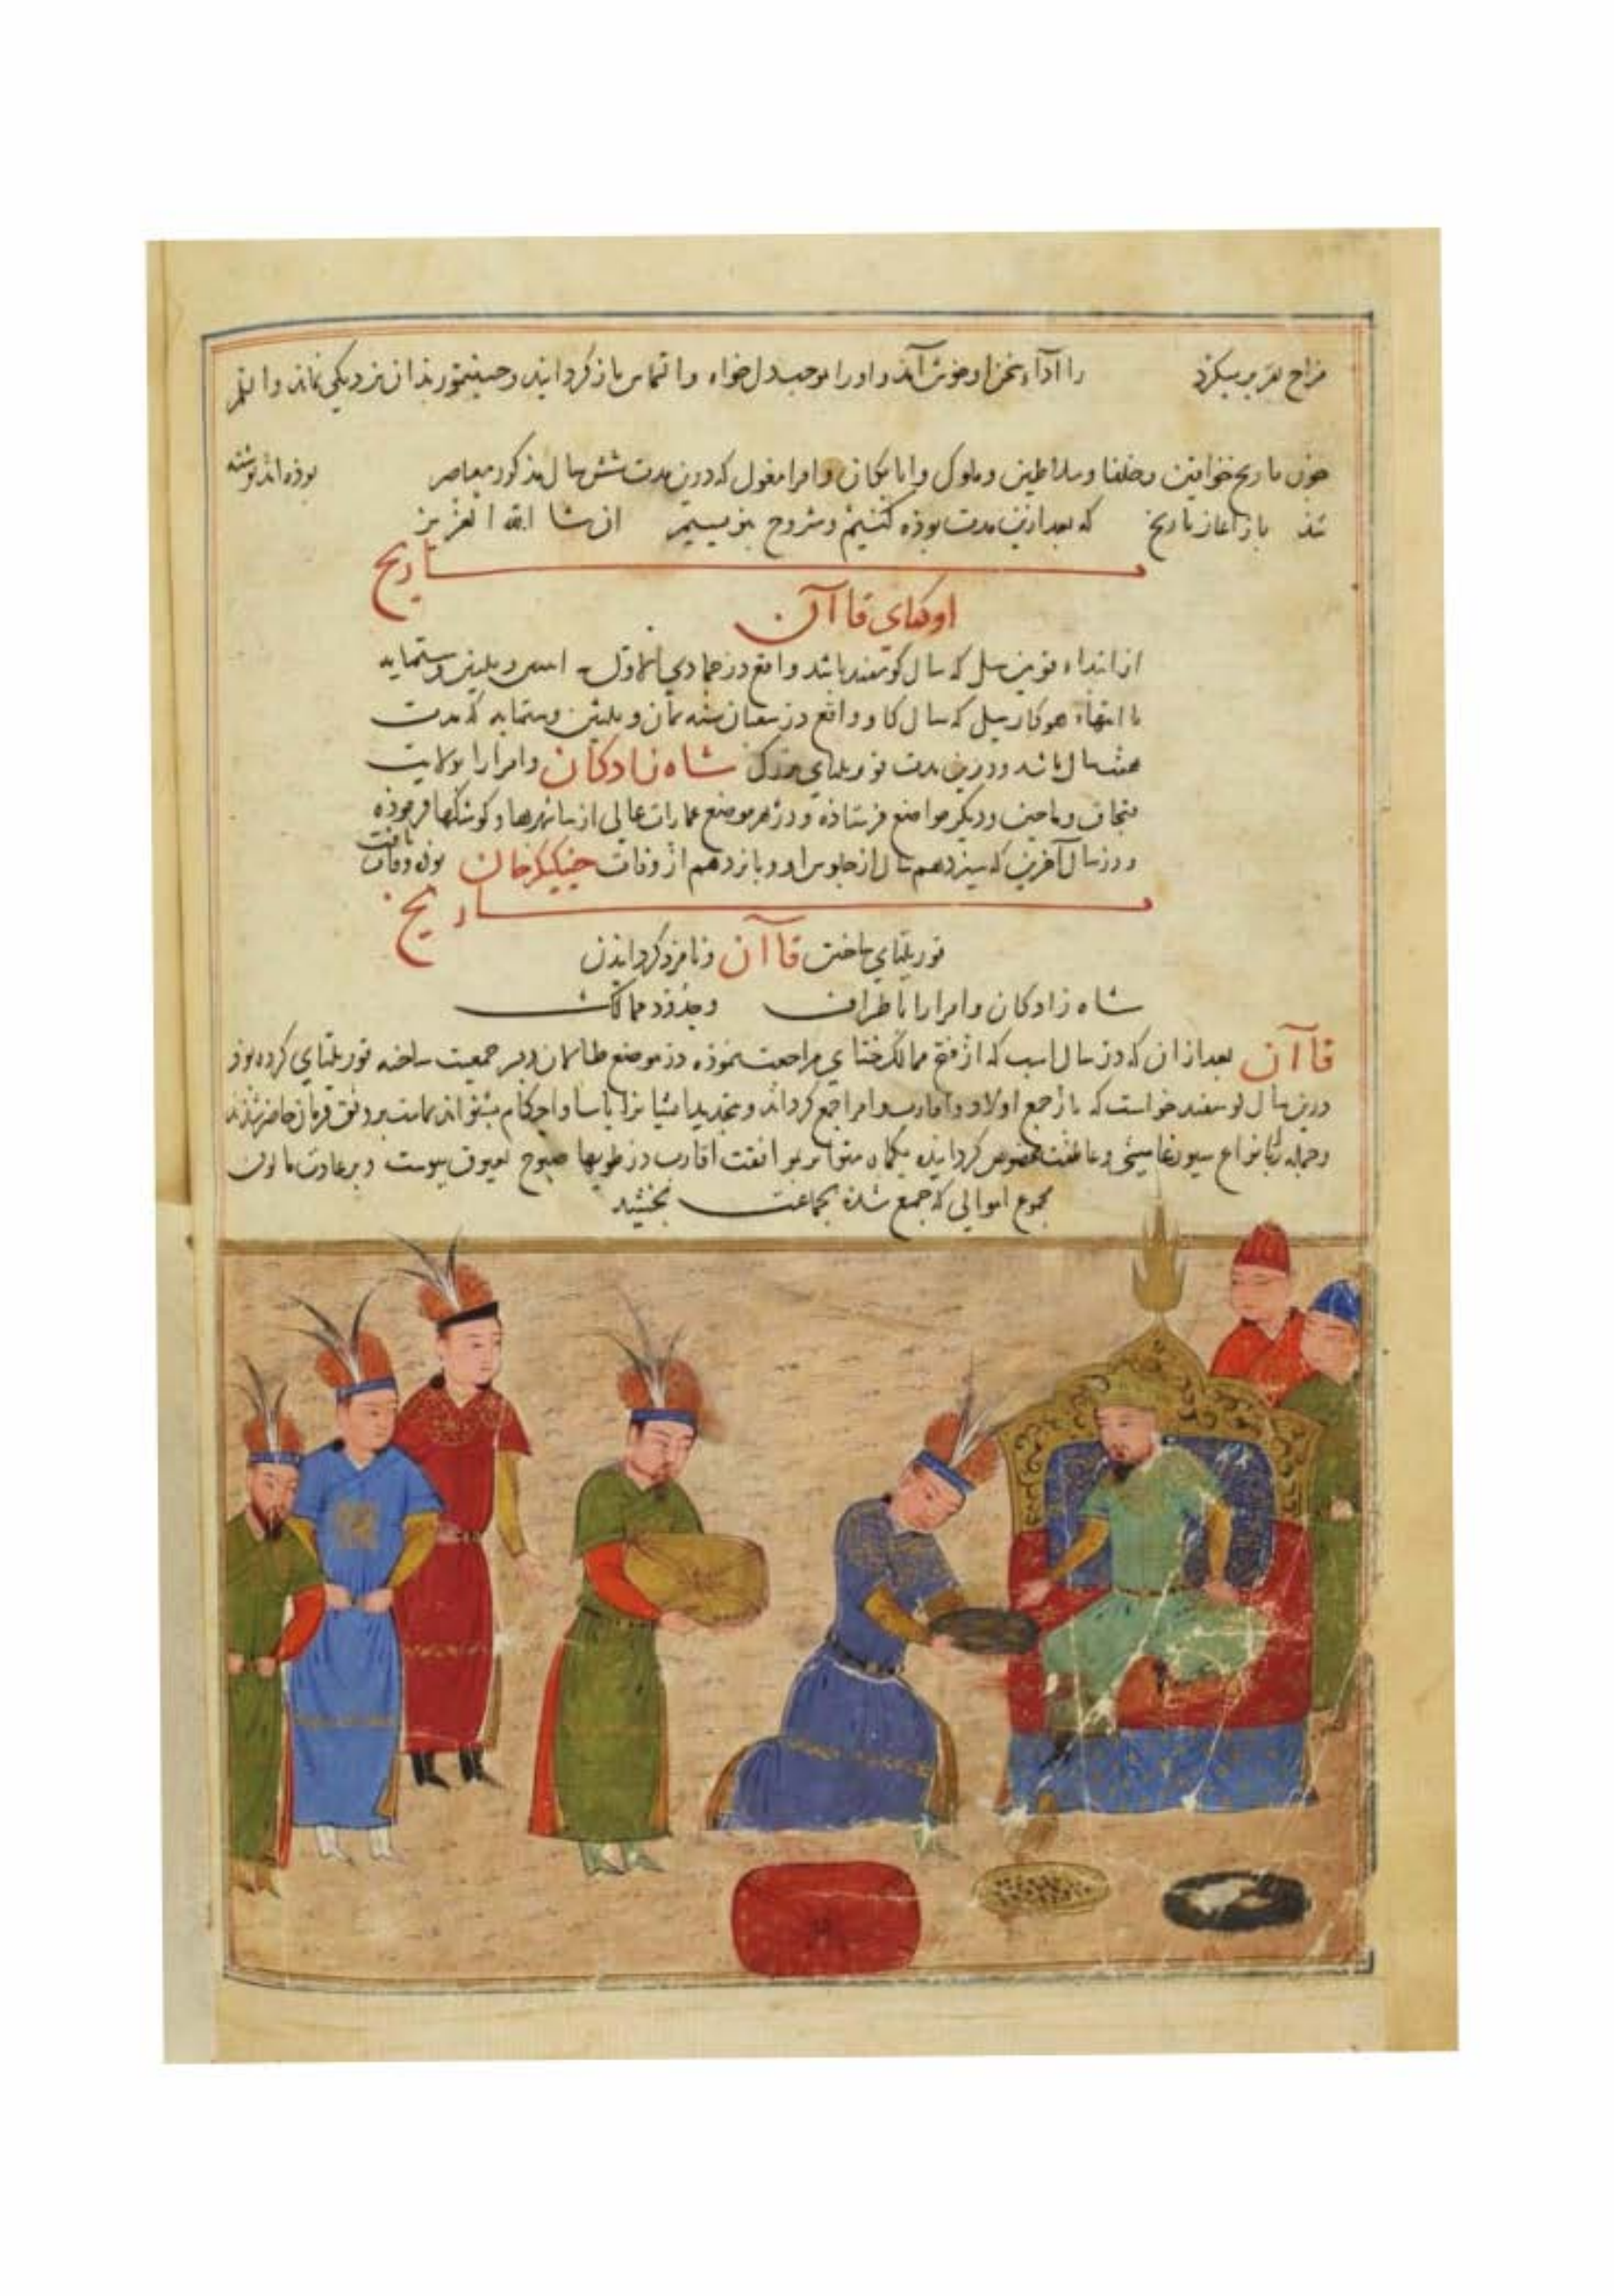 مزاح تقریر میکرد را اداء سخن او خوش آمد و اورا بموجب دل خواه و التماس باز کردانید و نزدیکی نماند
چون تاریخ خواقین و خلفا و سلاطین و ملوک و اتابکان و امرا مغول که درین مدت شش سال مذکور معاصر بوذه اند نوشته
شذ باز آغاز تاریخ که بعد ازین مدت بوذه کنیم و مشروح بنویسیم ان شا الله العزیز
تاریخ
اوکتای قاآن
از ابتداء قوین ییل که سال کوسفند باشد واقع در جمادی الاول سنه اثنین و ثلثین و ستمایه
تا انتهاء هوکار ییل که سال کاو واقع در شعبان سنه ثمان و ثلثین و ستمایه که مدت
هفت سال باشد و درین مدت قوریلتای بزرک شاه زادکان و امرا را بولایت
قبجاق و ماجین و دیکر مواضع فرستاذه و در هر موضع عمارات عالی از شهرها و کوشکها فرموذه
و در سال آخرین که سیزدهم سال از جلوس او و بانزدهم از وفات جینکیزخان بوذ وفات یافت
تاریخ
قوریلتای ساختن قاآن و نامزد کردانیدن
شاه زادکان و امرا را باطراف و حدود ممالک
قاآن بعد از ان که در سال اسب که از فتح ممالک ختای مراجعت نموذه در موضع جمعیت ساخته قوریلتای کرده بوذ
درین سال کوسفند خواست که باز جمع اولاد و اقارب و امرا جمع کرداند و بتجدید ایشانرا یاسا و احکام بشنواند تمامت بر وفق فرمان حاضر شذند
و جمله را بانواع سیورغامیشی و عاطفت مخصوص کردانیده یکماه متواتر بموافقت اقارب در طویها صبوح بغبوق بیوست و بر عادت مالوف
مجموع اموالی که جمع شذه بجماعت بخشید